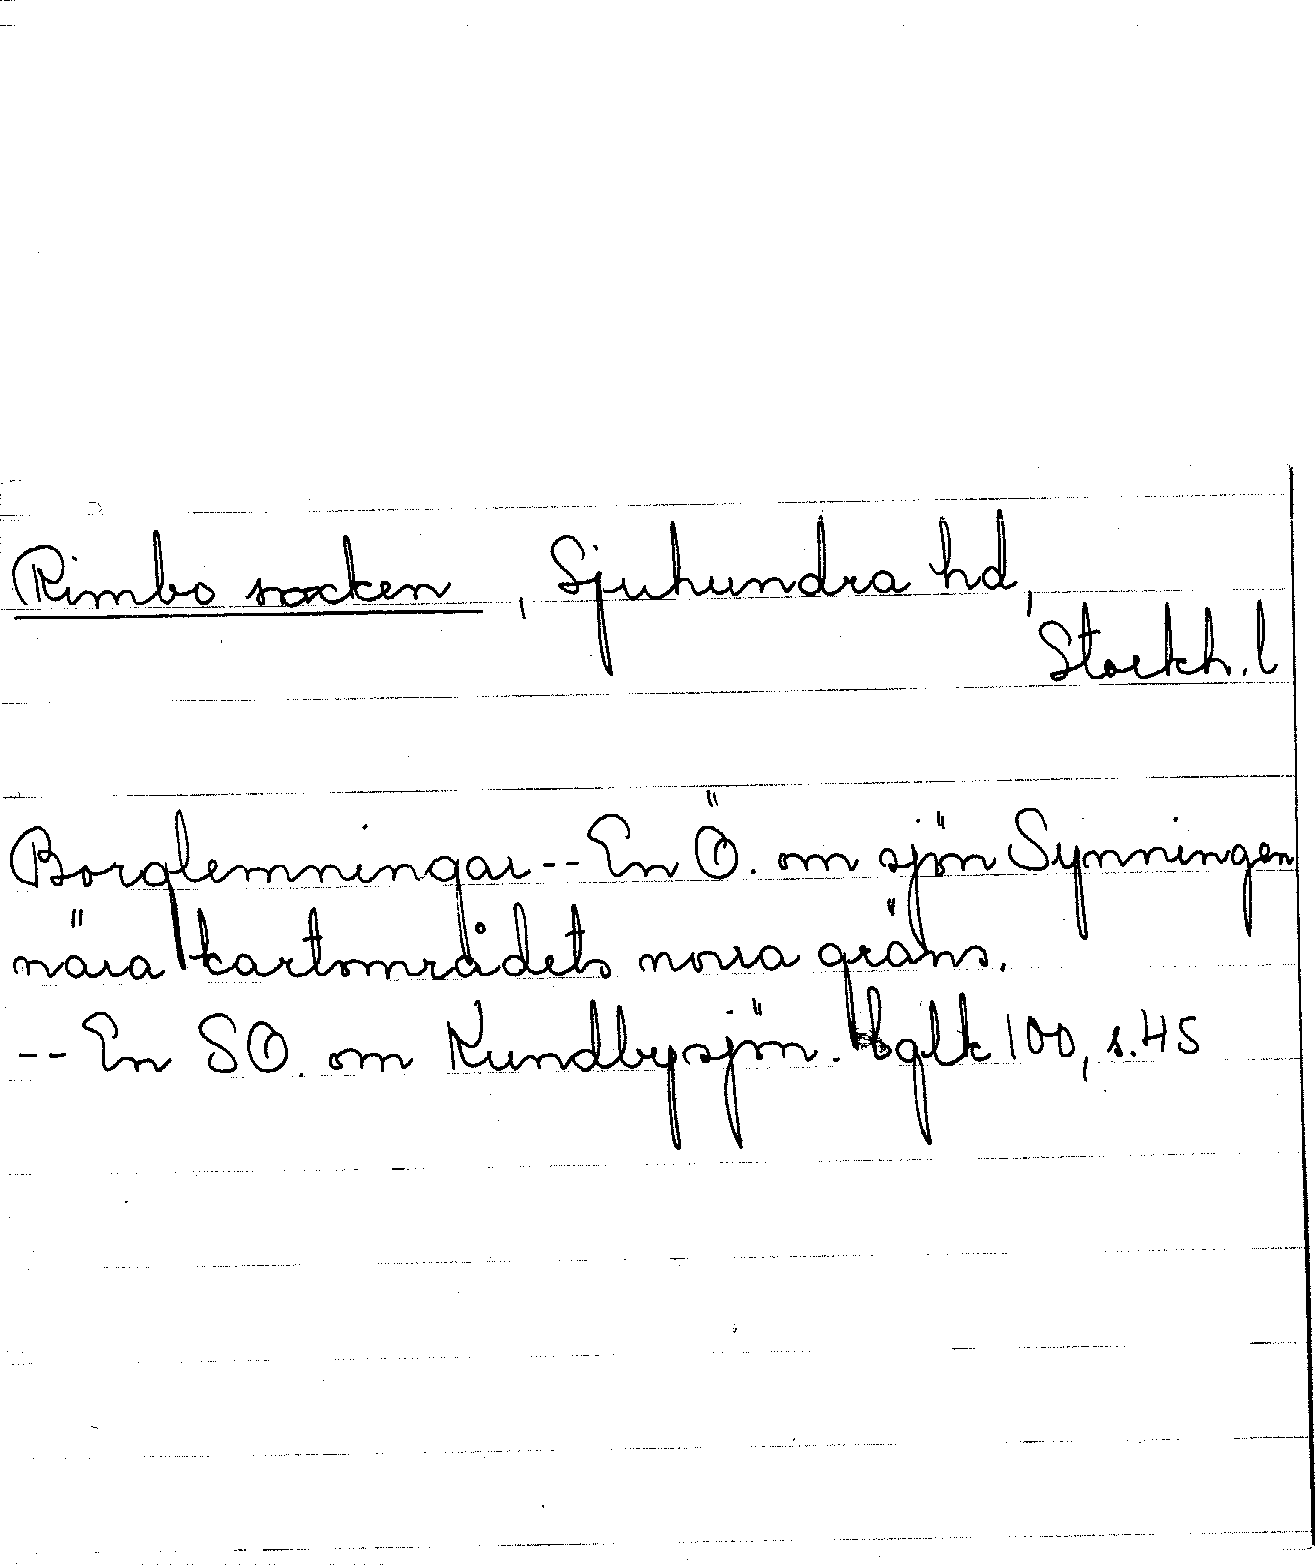 Rimbo socken, Sjuhundra hd,
Stockh. l
Borglemningar -- En Ö. om sjön Synningen
nära kartområdets norra gräns.
-- En SO. om Kundbysjön. bglk 100, s. 45